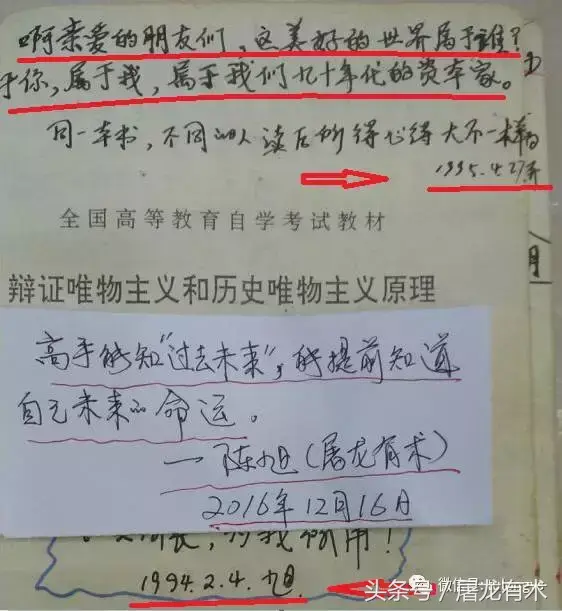 啊亲爱的朋友们，这美好的世界属于谁？
于你，属于我，属于我们九十年代的资本家。
同一本书，不同的人读后所得心得大不一样的
1995.4.27
全国高等教育自学考试教材
辩证唯物主义和历史唯物主义原理
高手能知“过去未来”，能提前知道
自己未来的命运。
一陈旭（屠龙有术）
2016年12月16日
为我所用！
1994.2.4.旭
微信号
头条号/屠龙有术